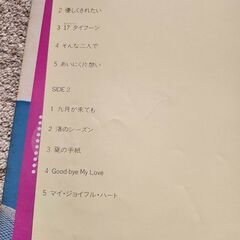 2 優しくされたい
3 17 タイフーン
4 そんな二人で
5 あいにく片想い
SIDE 2
1 九月が来ても
2 渚のシーズン
3 夏の手紙
4 Good-bye My Love
5 マイ・ジョイフル・ハート